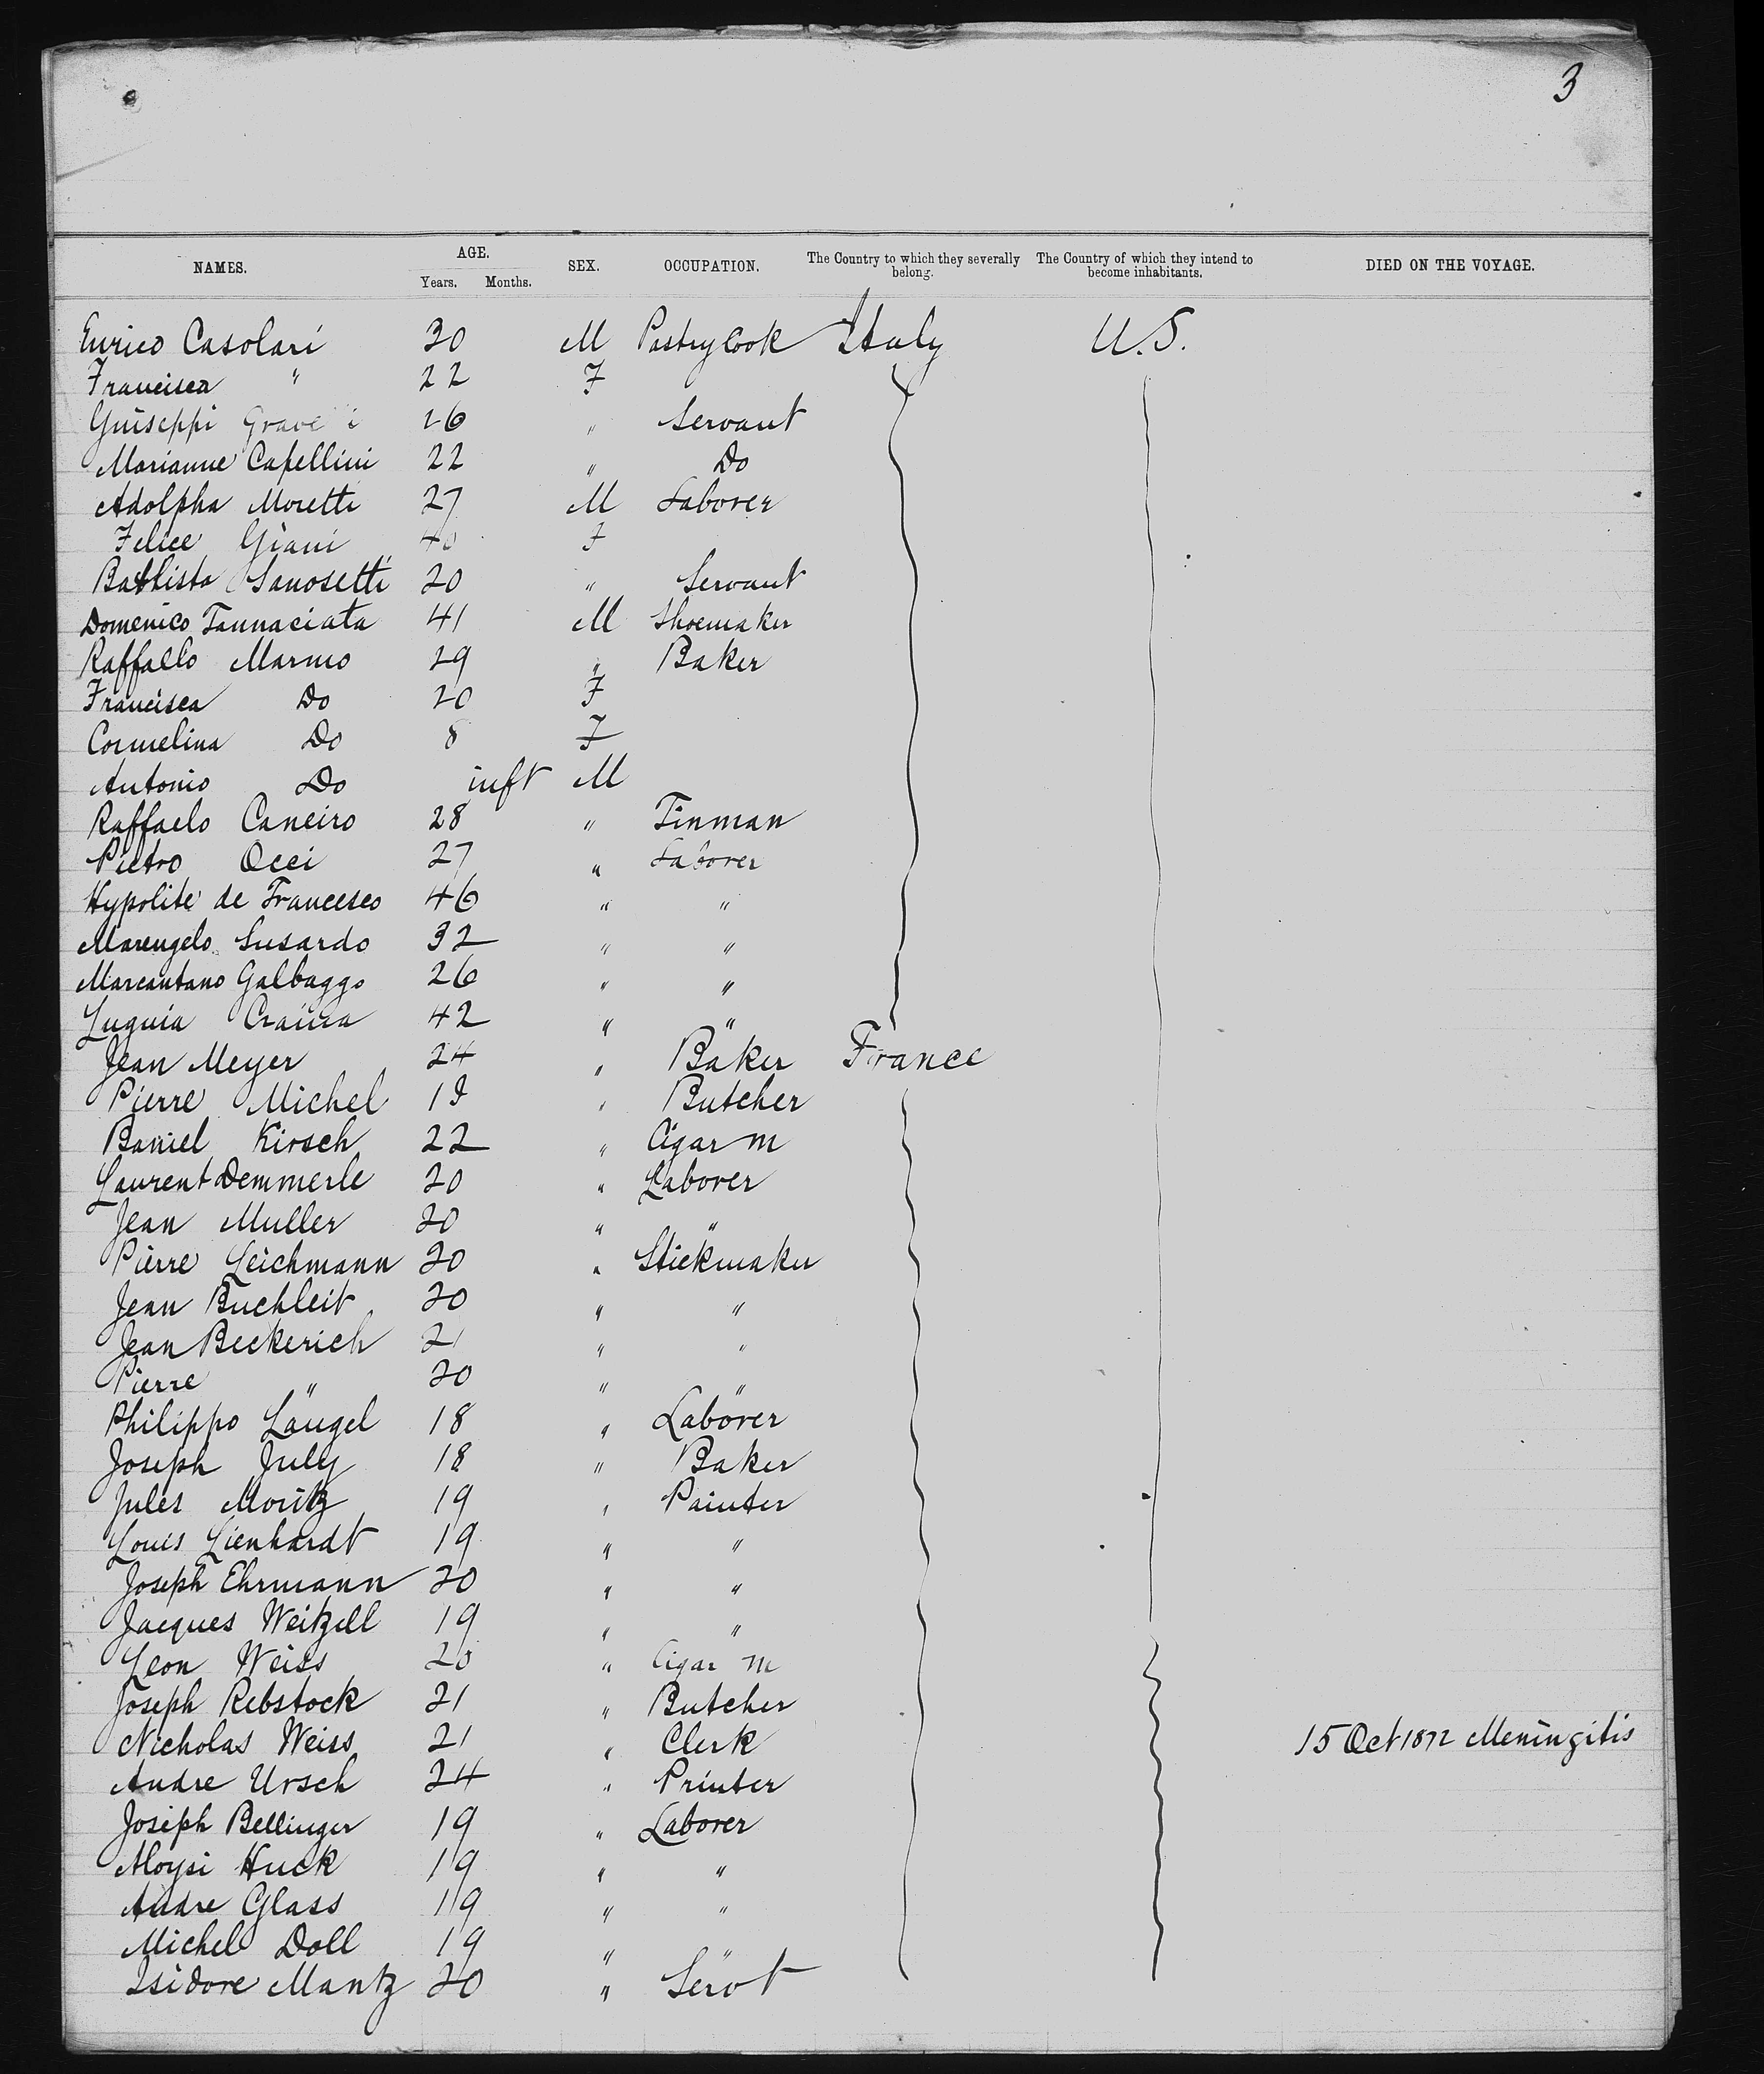 3
NAMES. AGE. Years. Months. SEX. OCCUPATION. The Country to which they severally belong. The Country of which they intend to become inhabitants. DIED ON THE VOYAGE.
Enrico Casolari 30 M Pastry Cook Italy U.S.
Francisca " 22 F
Guiseppi 26 " Servant
Marianne Capellini 22 " Do
Adolpha Moretti 27 M Laborer
Felice Giani 40 F
Battista Sanosetti 20 " Servant
Domenico Tannaciata 41 M Shoemaker
Raffaelo Marmo 29 " Baker
Francisca Do 20 F
Cormelina Do 8 F
Antonio Do inft M
Raffaelo Caneiro 28 " Tinman
Pietro Occi 27 " Laborer
Hypolite de Francesco 46 " "
Marengelo Susardo 32 " "
Marcantano Galbaggo 26 " "
Luguia 42 " "
Jean Meyer 24 " Baker France
Pierre Michel 18 " Butcher
Daniel Kirsch 22 " Cigar M
Laurent Demmerle 20 " Laborer
Jean Muller 20 " "
Pierre Leichmann 20 " Stickmaker
Jean Buchleit 20 " "
Jean Beckerich 21 " "
Pierre " 20 " "
Philippo Laugel 18 " Laborer
Joseph July 18 " Baker
Jules Moritz 19 " Painter
Louis Lienhardt 19 " "
Joseph Ehrmann 20 " "
Jacques Weitzell 19 " "
Leon Weiss 20 " Cigar M
Joseph Rebstock 21 " Butcher
Nicholas Weiss 21 " Clerk 15 Oct 1872 Meningitis
Andre Ursch 24 " Printer
Joseph Bellinger 19 " Laborer
Aloysi Huck 19 " "
Andre Glass 19 " "
Michel Doll 19 " "
Isidore Mantz 20 " Servt